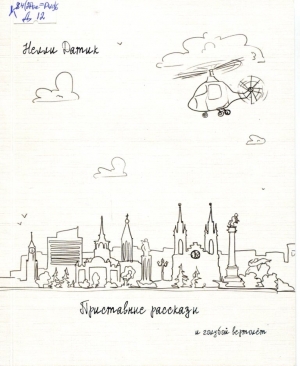 Д 12
Нелли Датик
Приставные рассказы
и голубой вертолёт